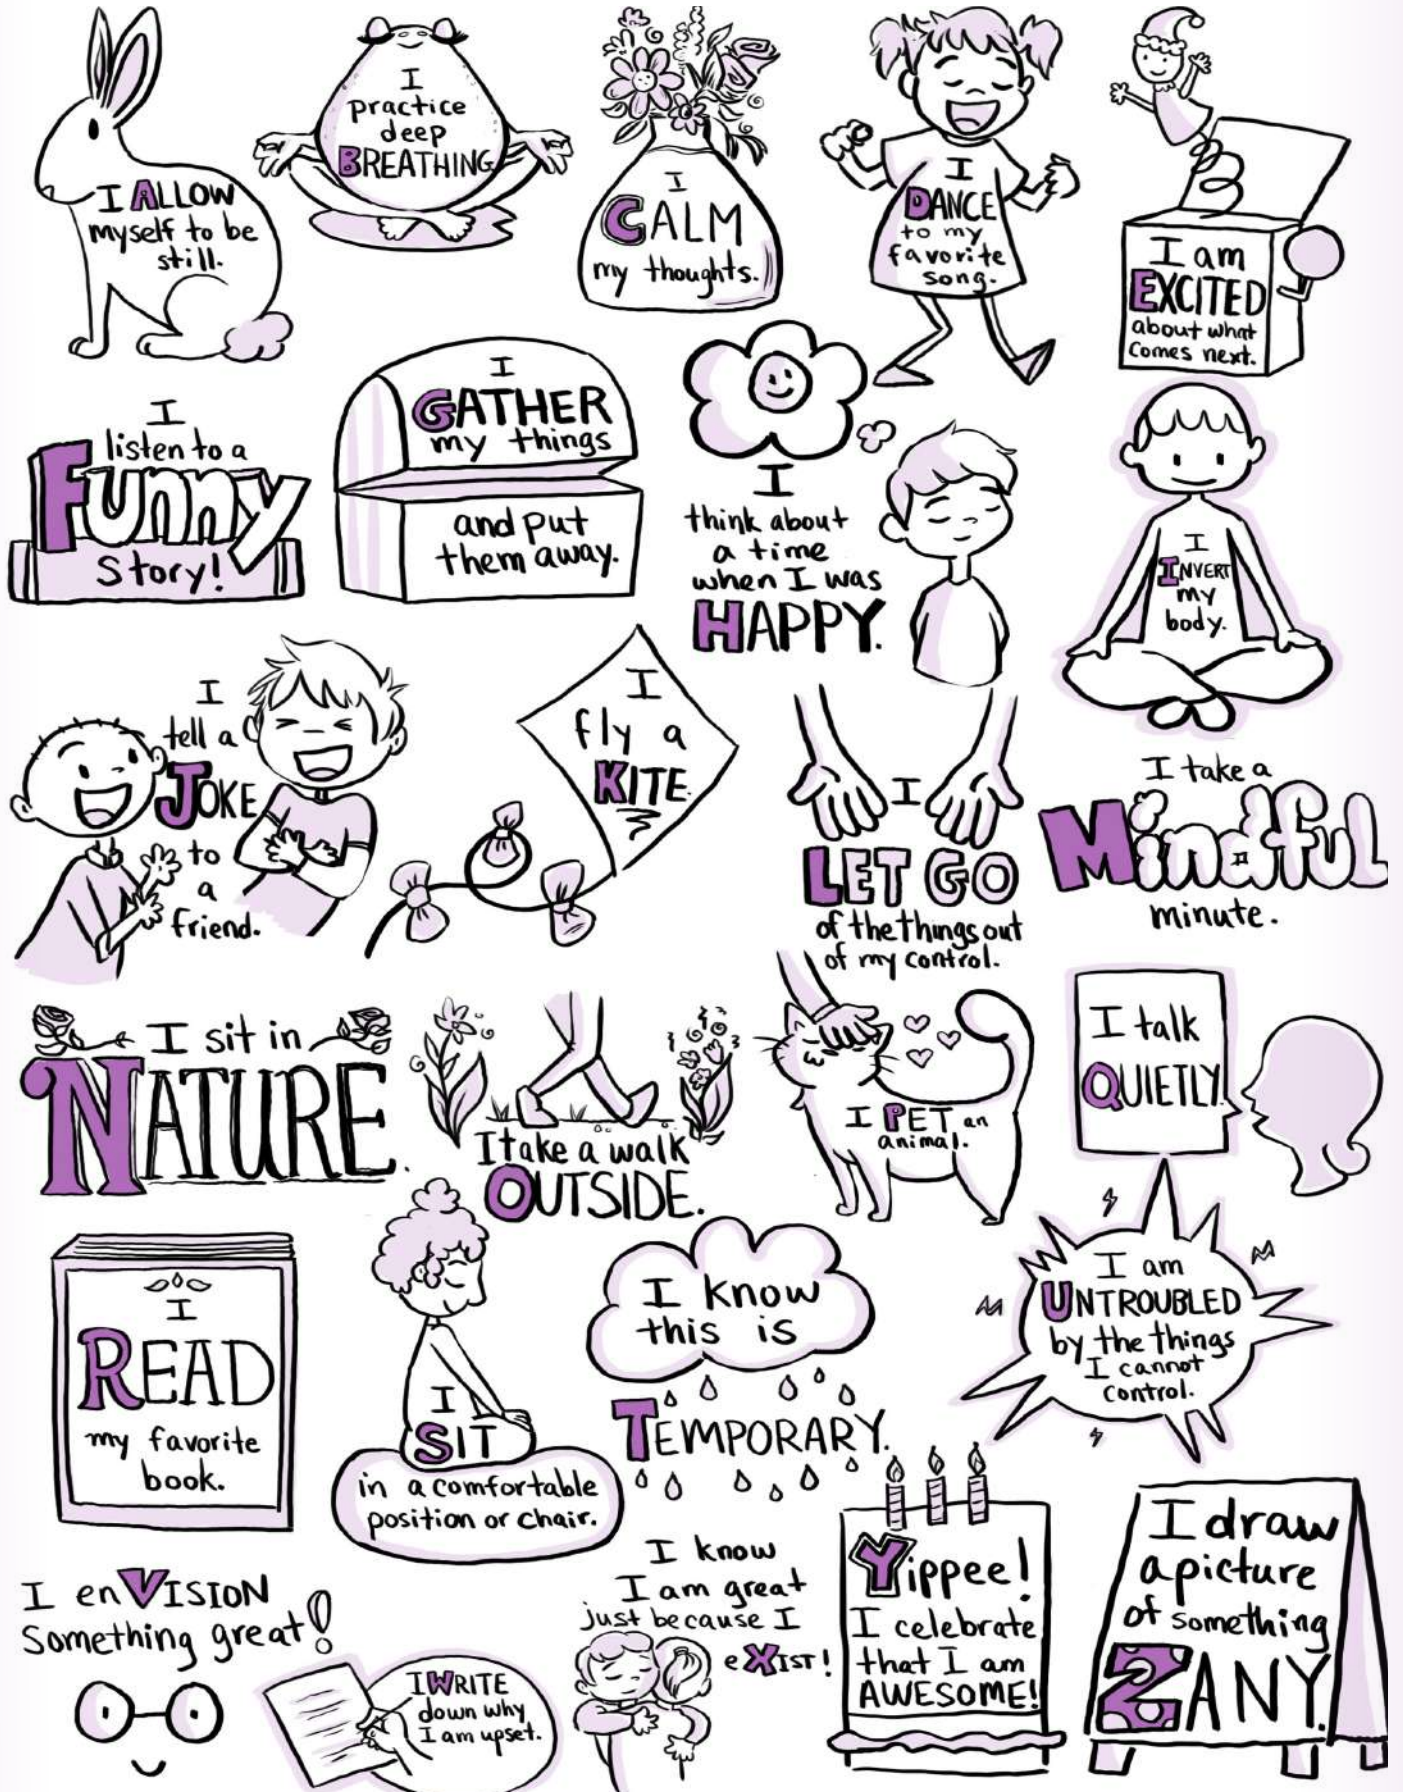 I ALLOW
myself to be
still.
I
practice
deep
BREATHING
I
CALM
my thoughts.
I
DANCE
to my
favorite
song.
I am
EXCITED
about what
comes next.
I
listen to a
Funny
Story!
I
GATHER
my things
and put
them away.
I
think about
a time
when I was
HAPPY.
I
INVERT
my
body.
I
tell a
JOKE
to
a
friend.
I
fly a
KITE
I
LET GO
of the things out
of my control.
I take a
Mindful
minute.
I sit in
NATURE.
I take a walk
OUTSIDE.
I PET an
animal.
I talk
QUIETLY
I
READ
my favorite
book.
I
SIT
in a comfortable
position or chair.
I know
this is
TEMPORARY.
I am
UNTROUBLED
by the things
I cannot
control.
I enVISION
Something great!
I WRITE
down why
I am upset.
I know
I am great
just because I
eXIST!
Yippee!
I celebrate
that I am
AWESOME!
I draw
a picture
of something
ZANY.